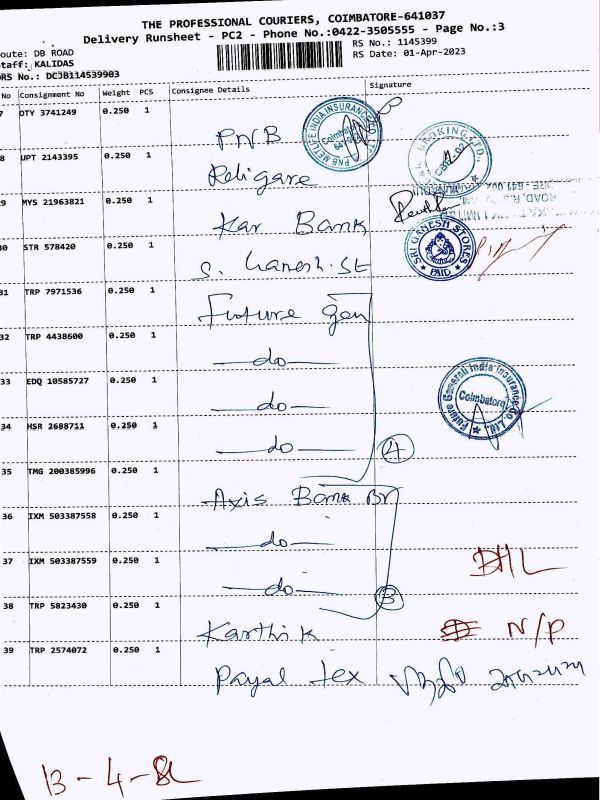 THE PROFESSIONAL COURIERS, COIMBATORE-641037
Delivery Runsheet - PC2 - Phone No.:0422-3505555 - Page No.:3
oute: DB ROAD
RS No.: 1145399
taff: KALIDAS
RS Date: 01-Apr-2023
DRS No.: DCJB114539903
No Consignment No Weight PCS Consignee Details Signature
7 DTY 3741249 0.250 1 PNB
PNB METLIFE INDIA INSURANCE CO. LTD. Coimbatore
8 UPT 2143395 0.250 1 Religare
BROKING LTD.,
29 MYS 21963821 0.250 1 Kar Bank
30 STR 578420 0.250 1 S. Ganesh. St
SRI GANESH STORES PAID
31 TRP 7971536 0.250 1 Future Gen
32 TRP 4438600 0.250 1 do
33 EDQ 10585727 0.250 1 do
Future Generali India Insurance Co. Ltd. Coimbatore
34 HSR 2688711 0.250 1 do 4
35 TMG 200385996 0.250 1 Axis Bank Br
36 IXM 503387558 0.250 1 do
37 IXM 503387559 0.250 1 do 3
38 TRP 5823430 0.250 1 Karthik N/P
39 TRP 2574072 0.250 1 Payal tex